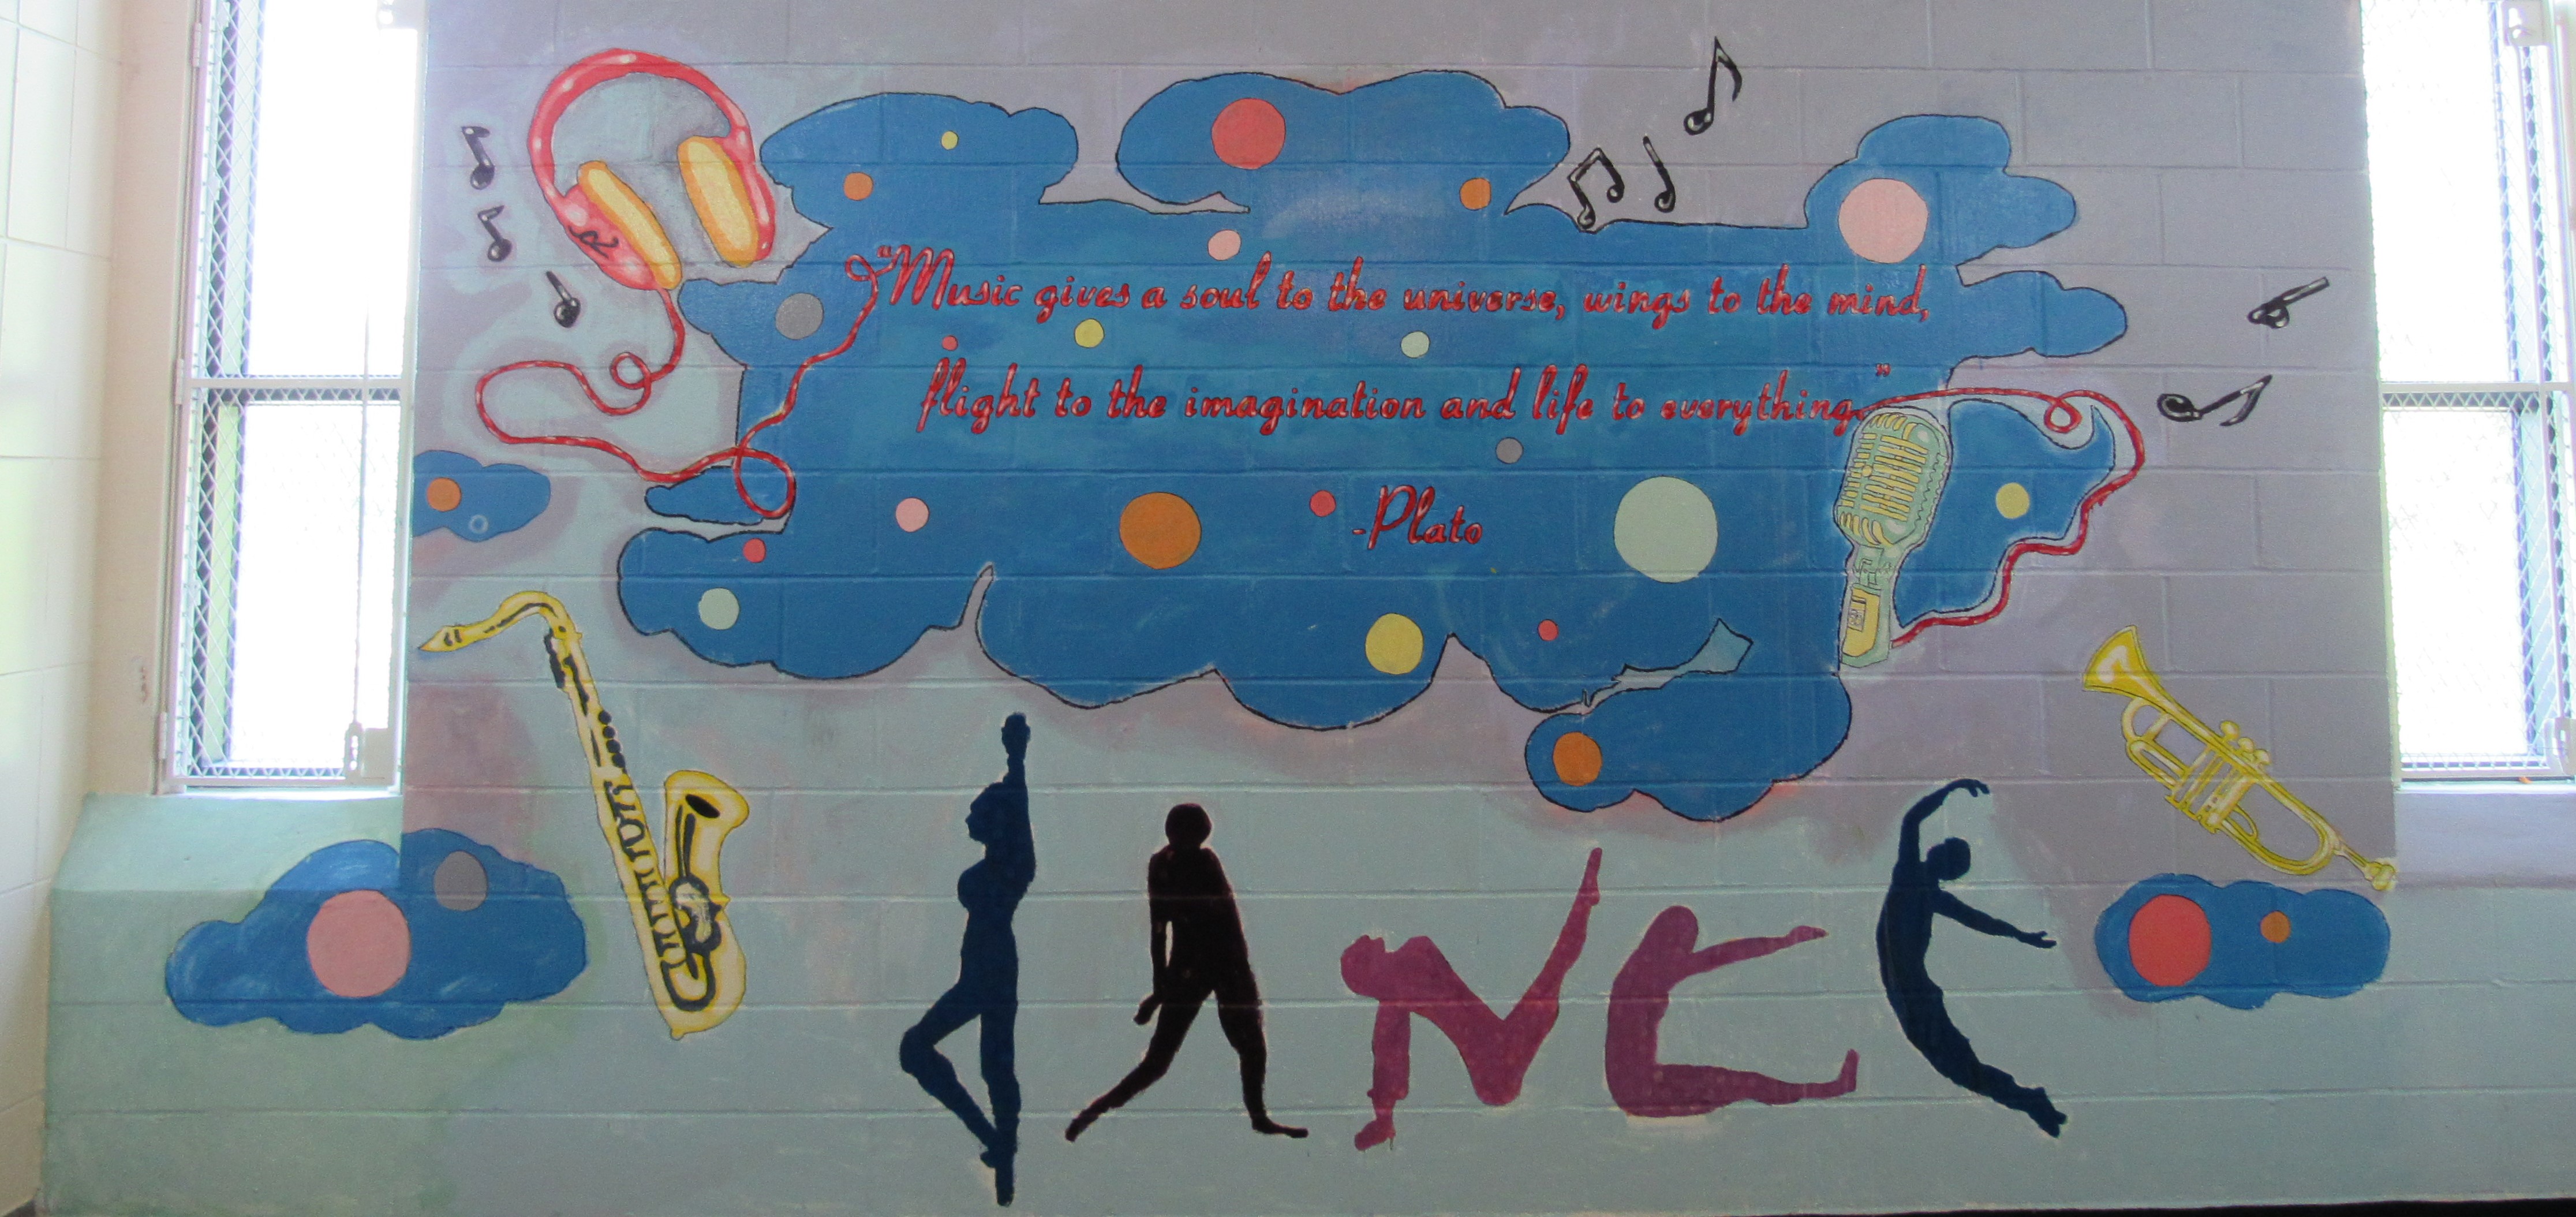 “Music gives a soul to the universe, wings to the mind,
flight to the imagination and life to everything.”
-Plato
DANCE